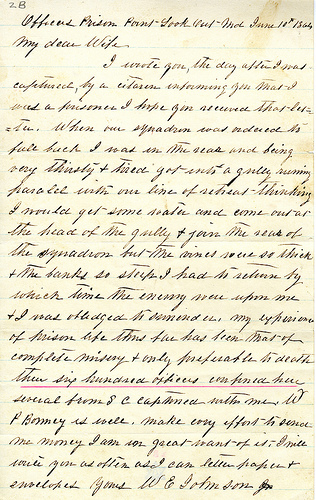 2B
Officers Prison Point Look Out Md June 10th 1864
My dear Wife
I wrote you, the day after I was
captured, by a citizen informing you that I
was a prisoner I hope you received that let=
=ter. When our squadron was ordered to
fall back I was in the rear and being
very thirsty & tired got into a gully runing
paralel with our line of retreat thinking
I would get some water and come out at
the head of the gully & join the rear of
the squadron but the vines were so thick
& the banks so steep I had to return by
which time the enemy were upon me
& I was obliged to surrender. my experience
of prison life thus far has been that of
complete misery & only preferable to death
there six hundred officers confined here
several from S C captured with me. W
P Bonney is well. make evry effort to send
me money I am in great want of it. I will
write you as often as I can letter paper &
envelopes Yours W E Johnson Jr